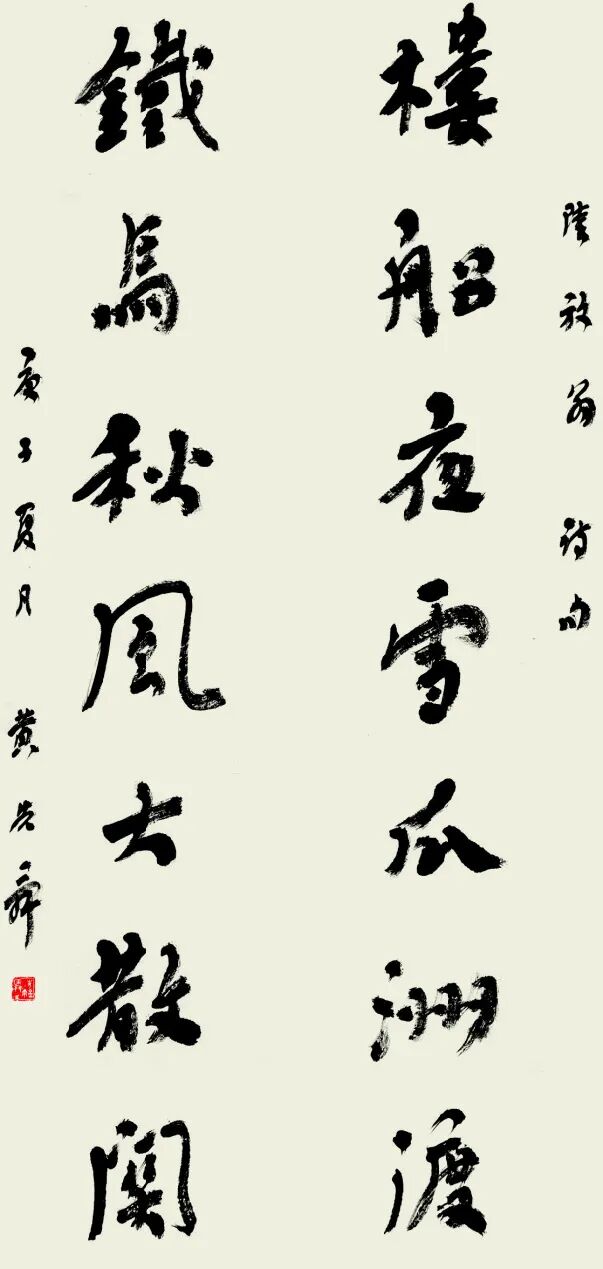 陸放翁 詩句
樓船夜雪瓜洲渡
鐵馬秋風大散關
庚子夏月 黄先舜